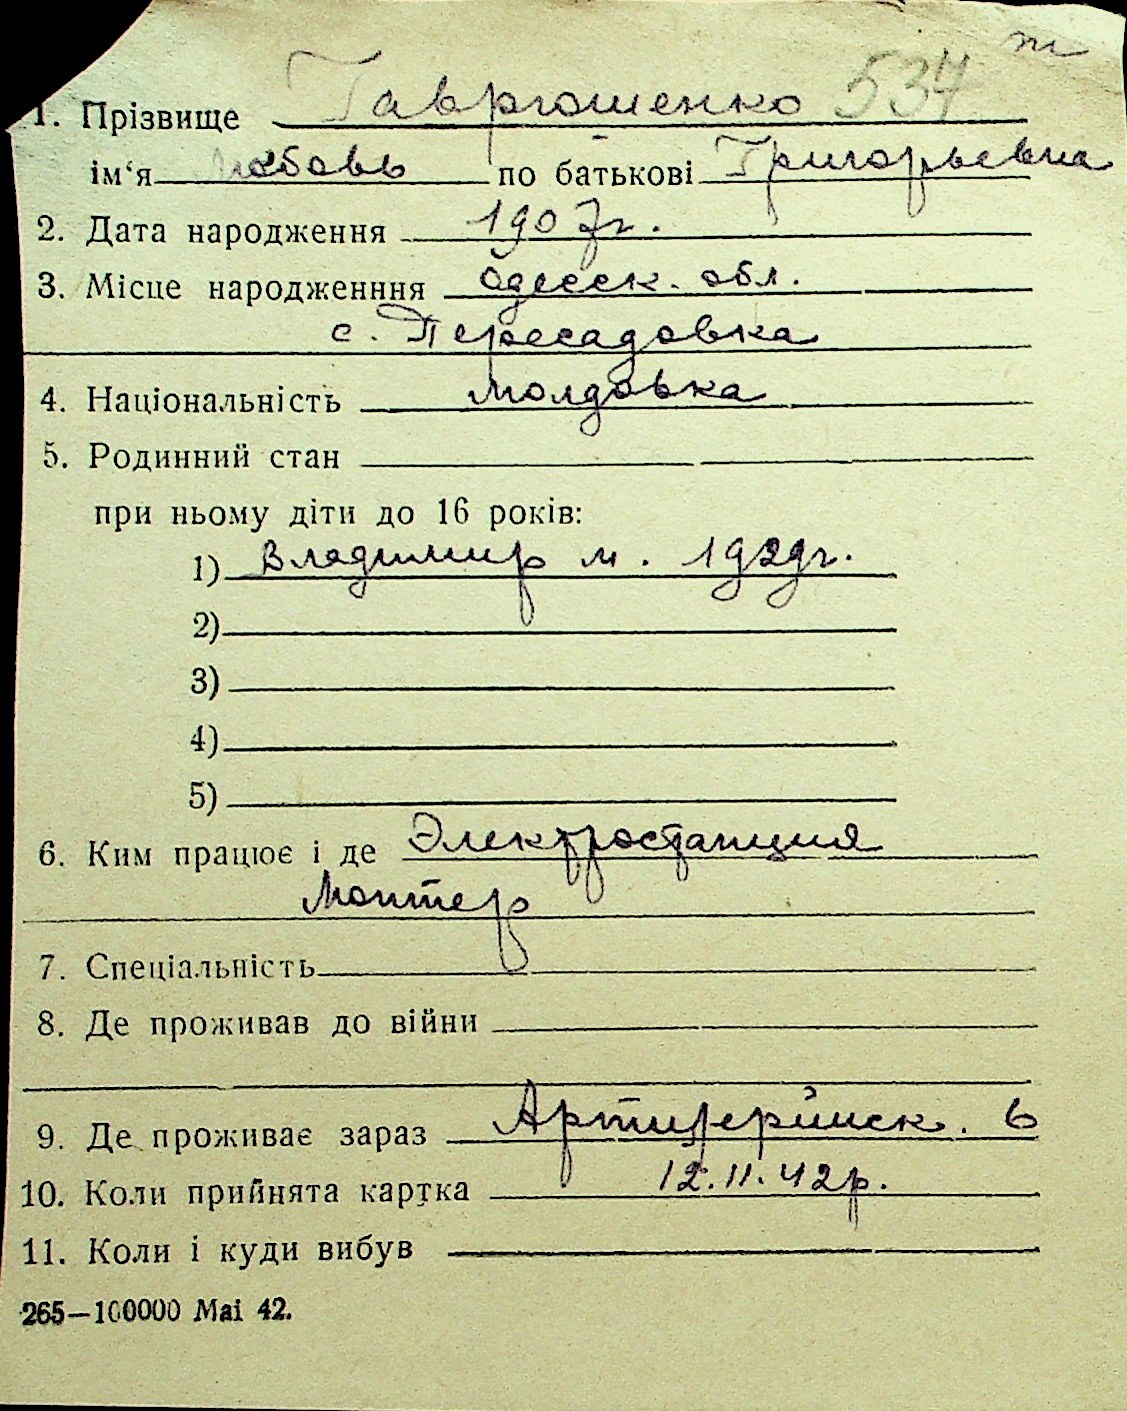 1. Прізвище Гаврюшенко 534
ім‘я Любовь по батькові Григорьевна
2. Дата народження 1907г.
3. Місце народженння Одесск. обл.
с. Пересадовка
4. Національність молдовка
5. Родинний стан
при ньому діти до 16 років:
1) Владимир м. 1929г.
2)
3)
4)
5)
6. Ким працює і де Электростанция
Монтер
7. Спеціальність
8. Де проживав до війни
9. Де проживає зараз Артилерийск. 6
10. Коли прийнята картка 12.11.42р.
11. Коли і куди вибув
265—100000 Mai 42.